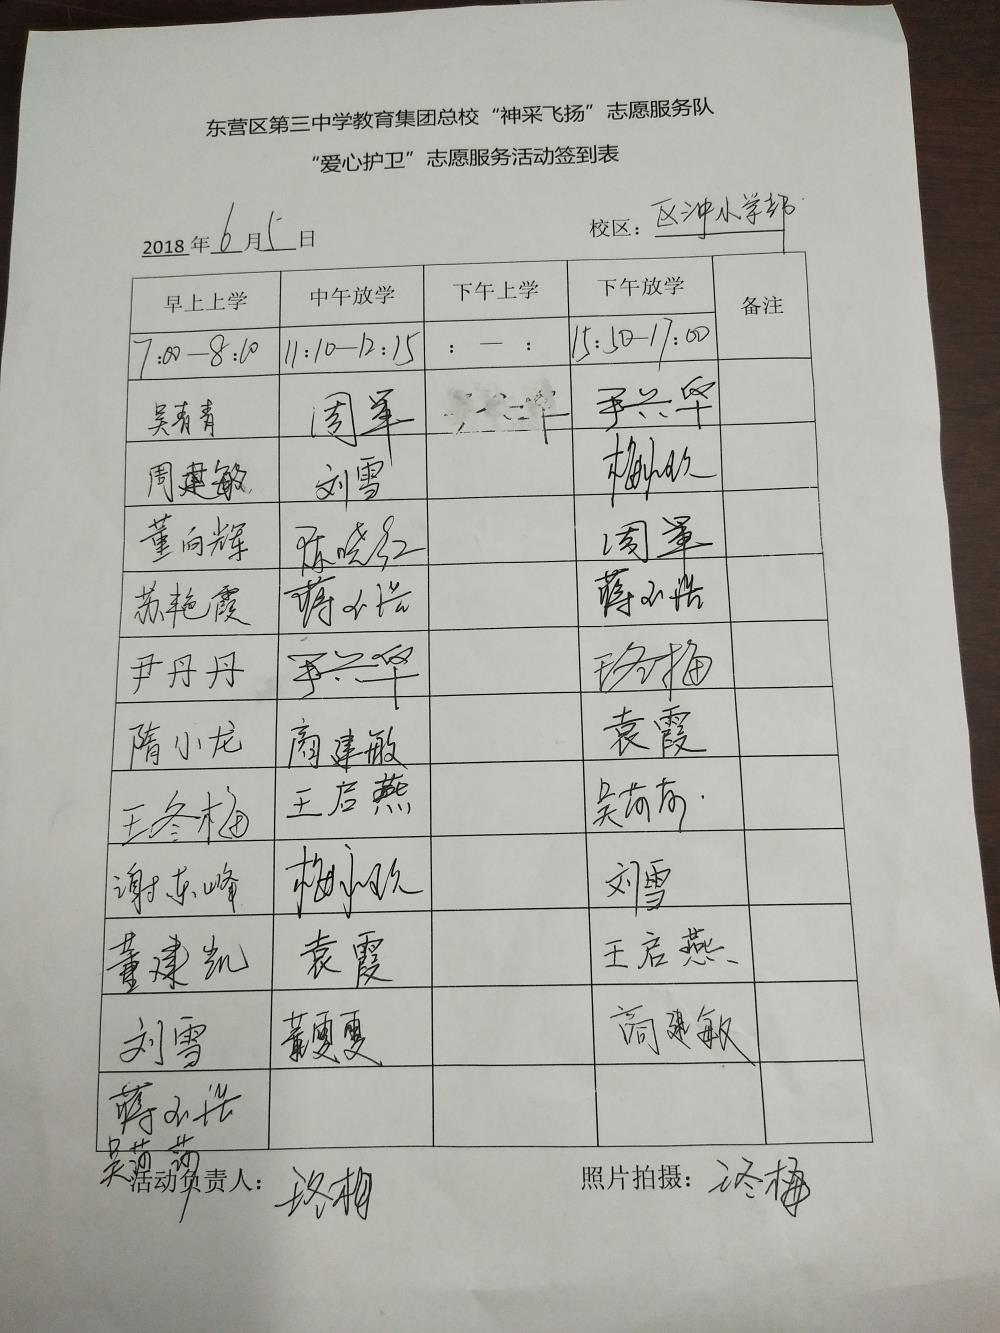 东营区第三中学教育集团总校“神采飞扬”志愿服务队
“爱心护卫”志愿服务活动签到表
2018年6月5日 校区：区冲小学部
早上上学 中午放学 下午上学 下午放学 备注
7:00—8:10 11:10—12:15 : — : 15:50—17:00
吴青青 周军 尹兴华
周建敏 刘雪 梅永欣
董向辉 陈晓红 周军
苏艳霞 蒋不浩 蒋不浩
尹丹丹 尹兴华 王冬梅
隋小龙 商建敏 袁霞
王冬梅 王启燕 吴莎莎
谢东峰 梅永欣 刘雪
董建凯 袁霞 王启燕
刘雪 董夏夏 商建敏
蒋不浩
吴莎莎
活动负责人：王冬梅 照片拍摄：王冬梅